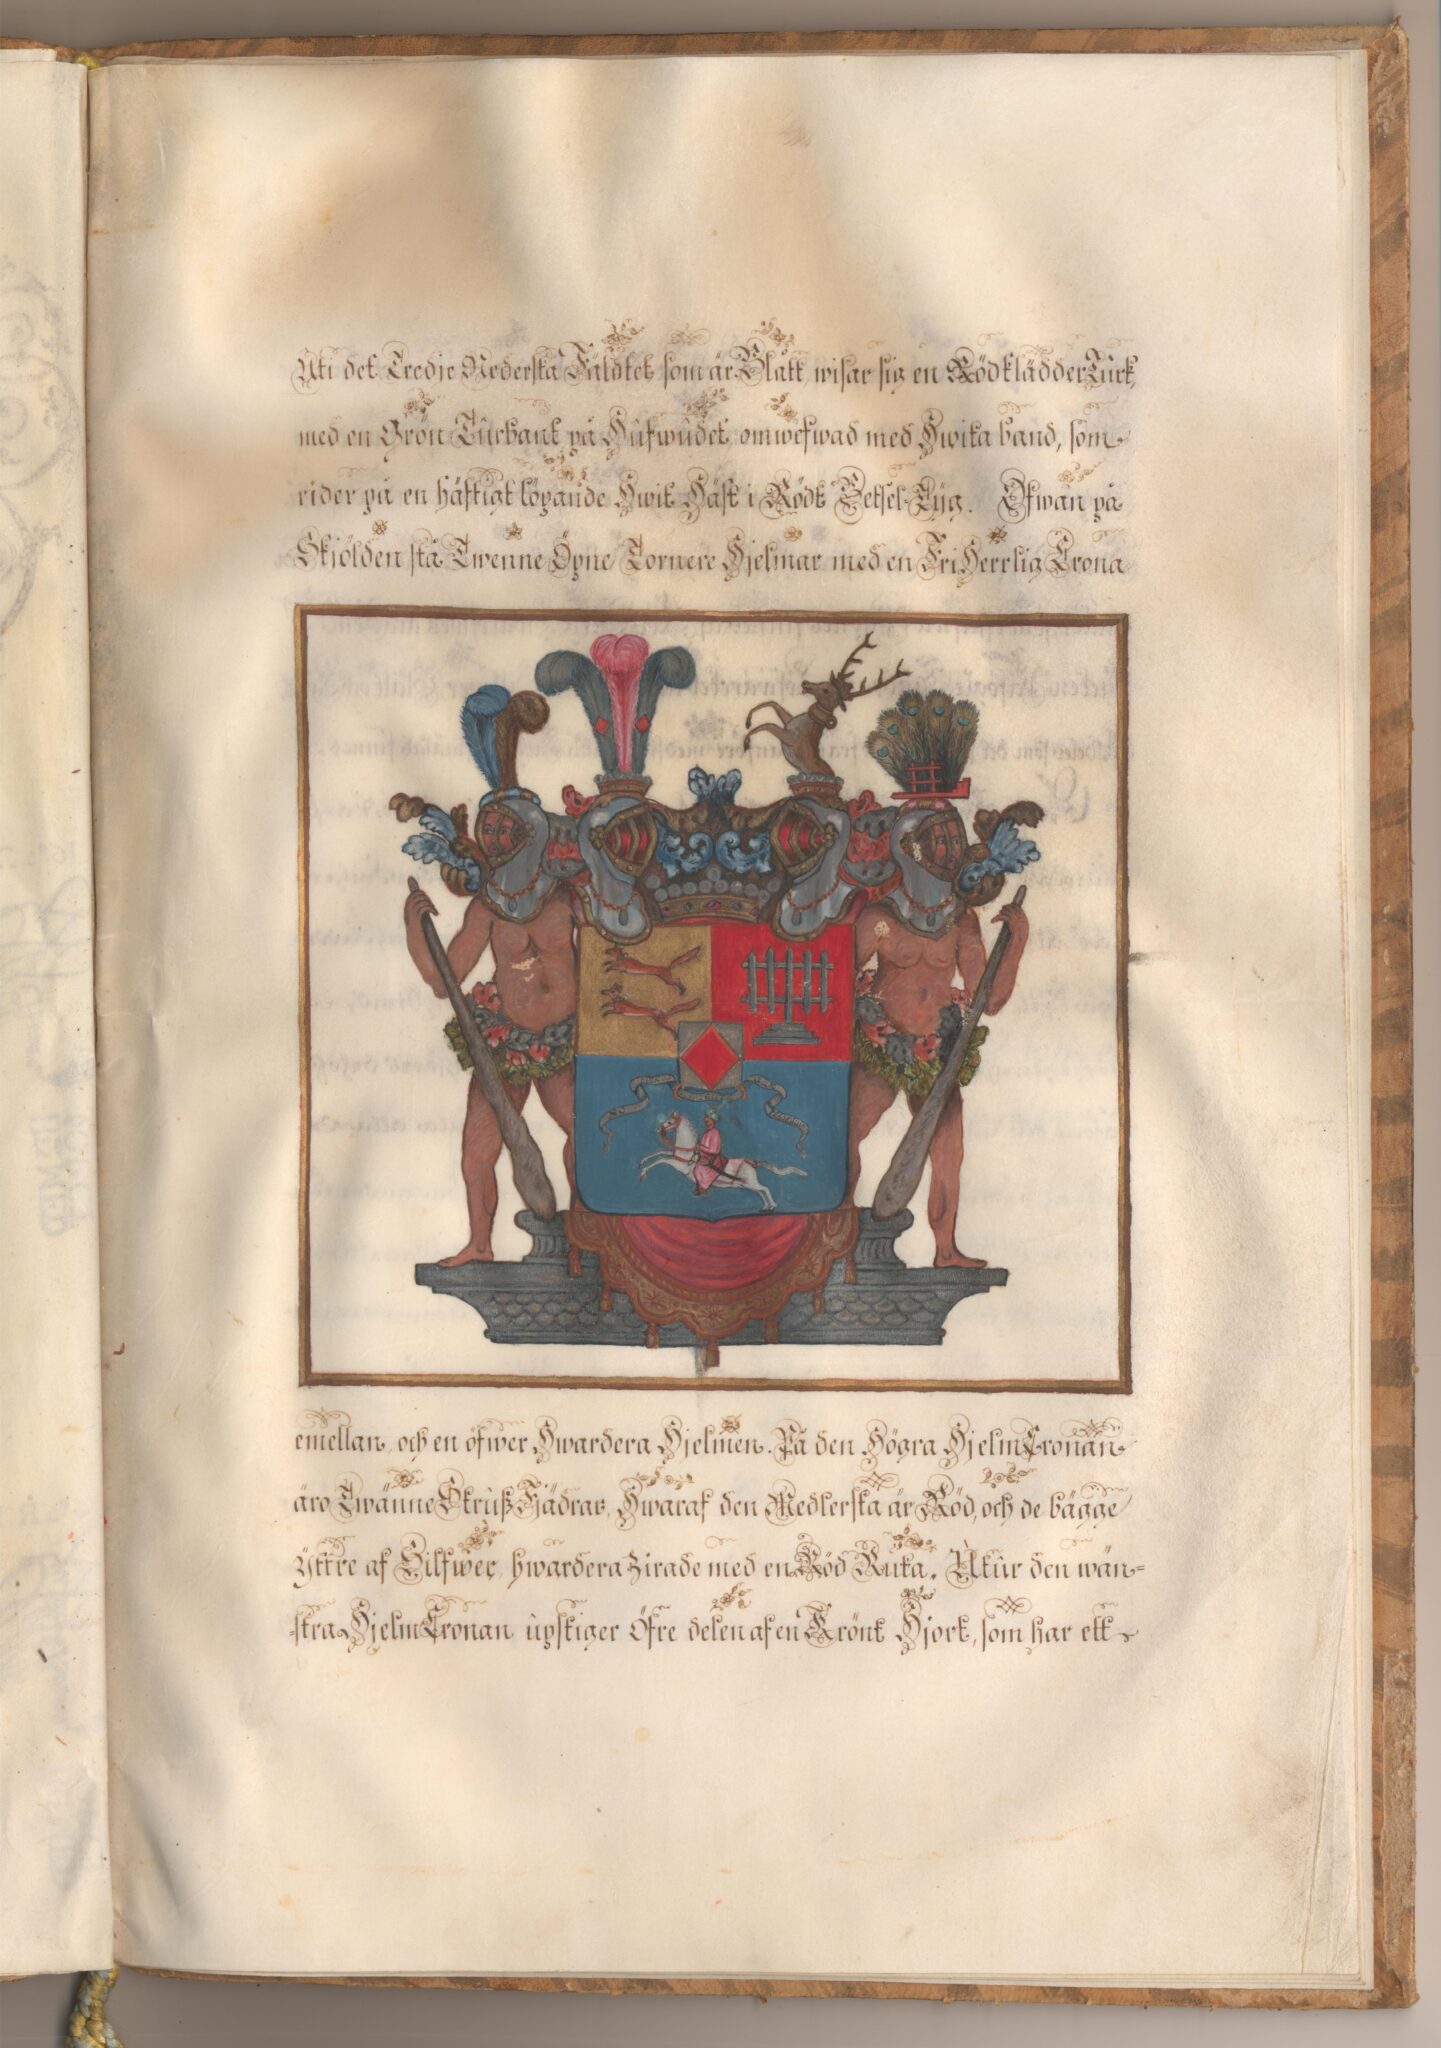 Uti det Tredje Nederska Fäldtet som är Blått wisar sig en Rödklädder Türk,
med en Grön Türbant på Hüfwüdet omwefwad med Hwita band, som
rider på en häftigt löpande Hwit Häst i Rödt Betsel-Tÿg. Ofwan på
Skjölden stå Twenne Öpne Tornere Hjelmar med en FriHerrlig Crona
emellan, och en öfwer Hwardera Hjelmen. På den Högra HjelmCronan
äro Twänne Strüß Fjädrar, Hwaraf den Medlerska är Röd, och de bägge
Yttre af Silfwer, hwardera zirade med en Röd Ruta. Utür den wän=
stra HjelmCronan üpstiger öfre delen af en Krönt Hjort, som har ett